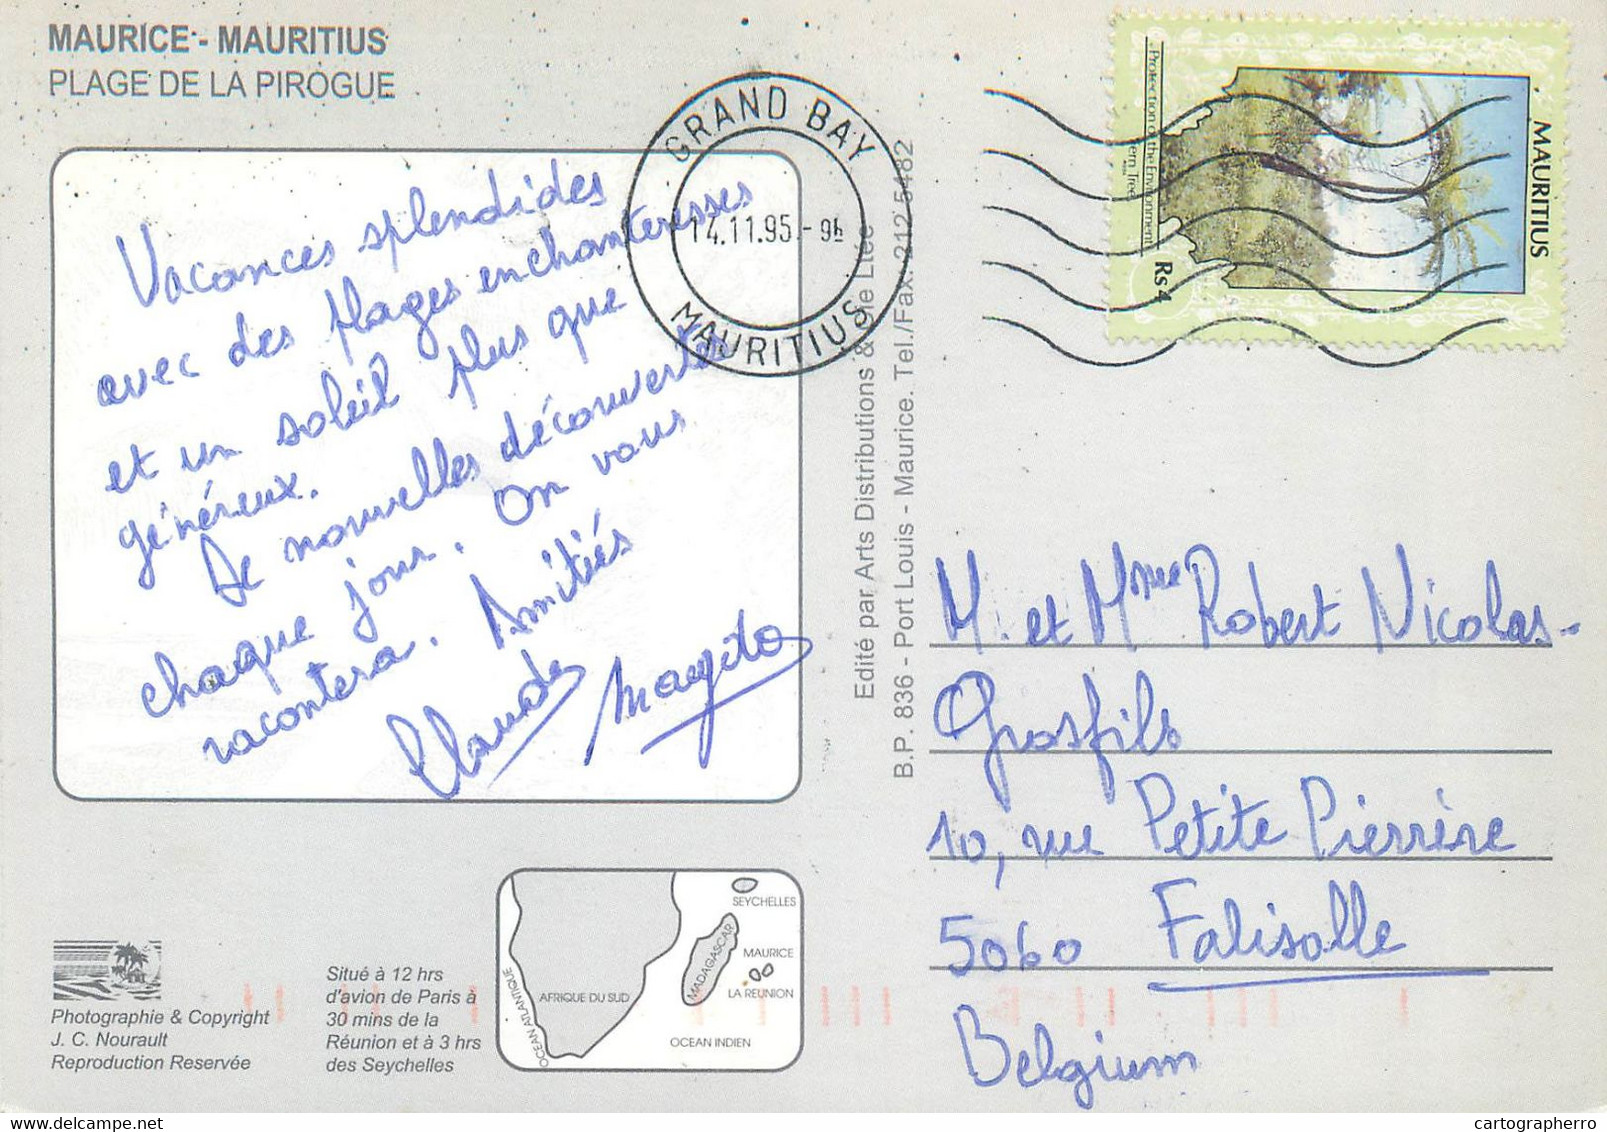 MAURICE - MAURITIUS
PLAGE DE LA PIROGUE
Vacances splendides
avec des plages enchanteresses
et un soleil plus que
généreux.
De nouvelles découvertes
chaque jour. On vous
racontera. Amitiés
Claude Margito
GRAND BAY
14.11.95.-9h
MAURITIUS
MAURITIUS
Rs 4
Protection of the Environment
Edité par Arts Distributions & Cie Ltée
B.P. 836 - Port Louis - Maurice. Tel./Fax: 212 5482
M. et Mme Robert Nicolas-
Grosfils
10, rue Petite Pierrère
5060 Falisolle
Belgium
Photographie & Copyright
J. C. Nourault
Reproduction Reservée
Situé à 12 hrs
d'avion de Paris à
30 mins de la
Réunion et à 3 hrs
des Seychelles
SEYCHELLES
MADAGASCAR
MAURICE
LA REUNION
AFRIQUE DU SUD
OCEAN ATLANTIQUE
OCEAN INDIEN
cartographerro